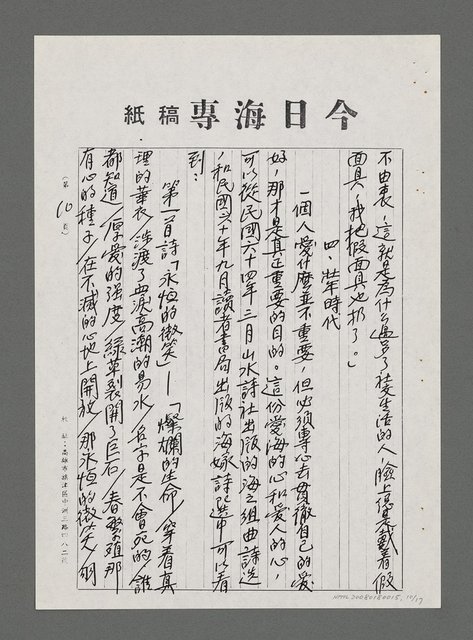 今日海專稿紙
不由衷，這就是為什么過多了社交生活的人，臉上總是戴着假
面具，我把假面具也扔了。」
四、壯年時代
一個人愛什麼並不重要，但必須專心去貫徹自己的愛
好，那才是真正重要的目的。這份愛海的心和愛人的心，
可以從民國六十四年三月山水詩社出版的海之組曲詩選
，和民國六十年九月讀者書局出版的海嫁詩選中可以看
到：
第一首詩「永恒的微笑」—「燦爛的生命／穿着真
理的華衣／涉渡了血淚高潮的易水／兵子是不會死的／誰
都知道／厚愛的强度／綠草裂開了巨石／春繁殖那
有心的種子／在不滅的心地上開放／那永恒的微笑／羽
（第10頁）
社址：高雄市旗津區中洲三路四八二號
NMTL20080180015, 10/17